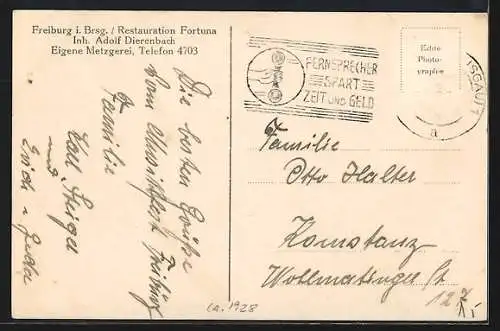 Freiburg i. Brsg. / Restauration Fortuna
Inh. Adolf Dierenbach
Eigene Metzgerei, Telefon 4703
Die besten Grüße
vom Musikfest Freiburg
Familie
Karl Steiger
und
FERNSPRECHER
SPART
ZEIT UND GELD
Echte
Photo-
graphie
a
Familie
Otto Halter
Konstanz
Wollmatinger St
127
ca. 1928